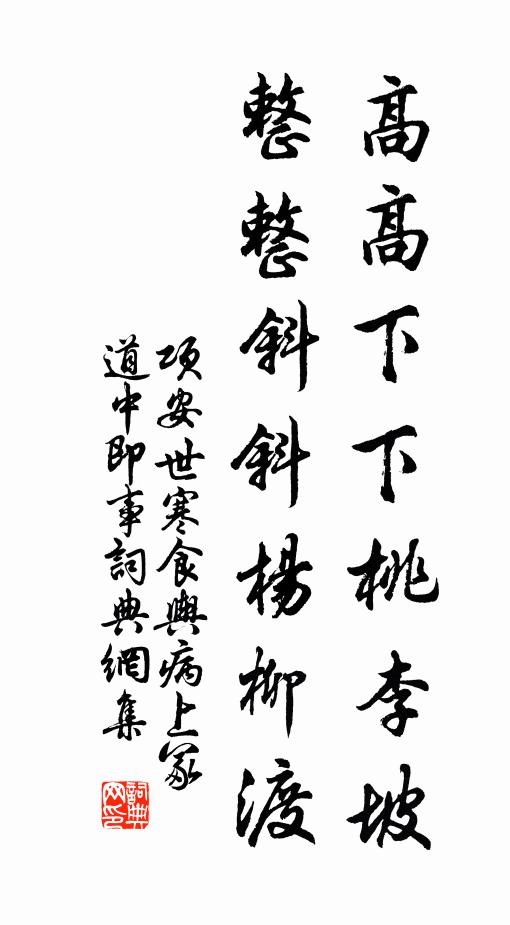 高高下下桃李坡
整整斜斜楊柳渡
項安世寒食輿病上冢
道中即事詞典網集
詞典
网印